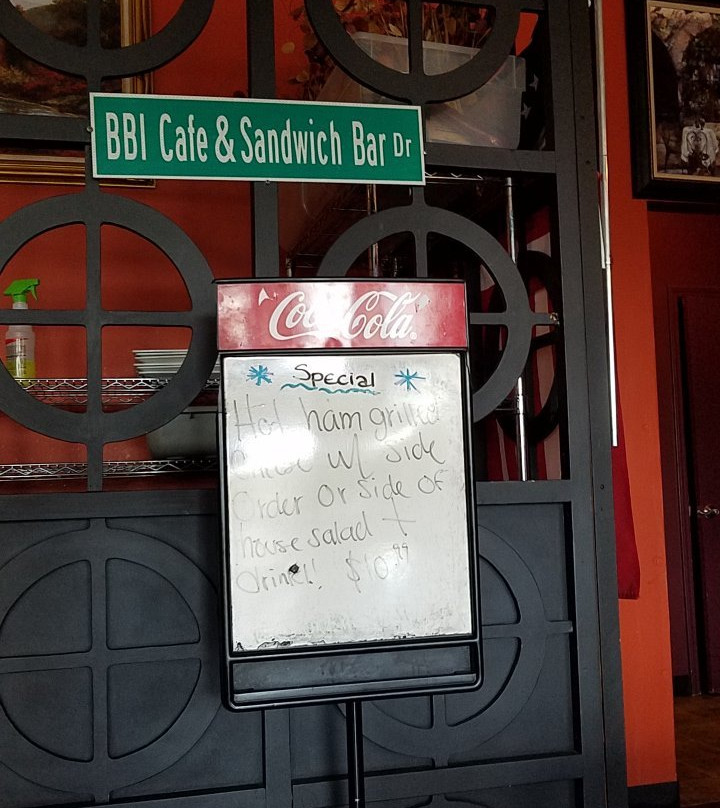 BBI Cafe & Sandwich Bar Dr
Coca-Cola
Special
Hot ham grilled
cheese w/ side
Order or side of
house salad +
drink! $10.99